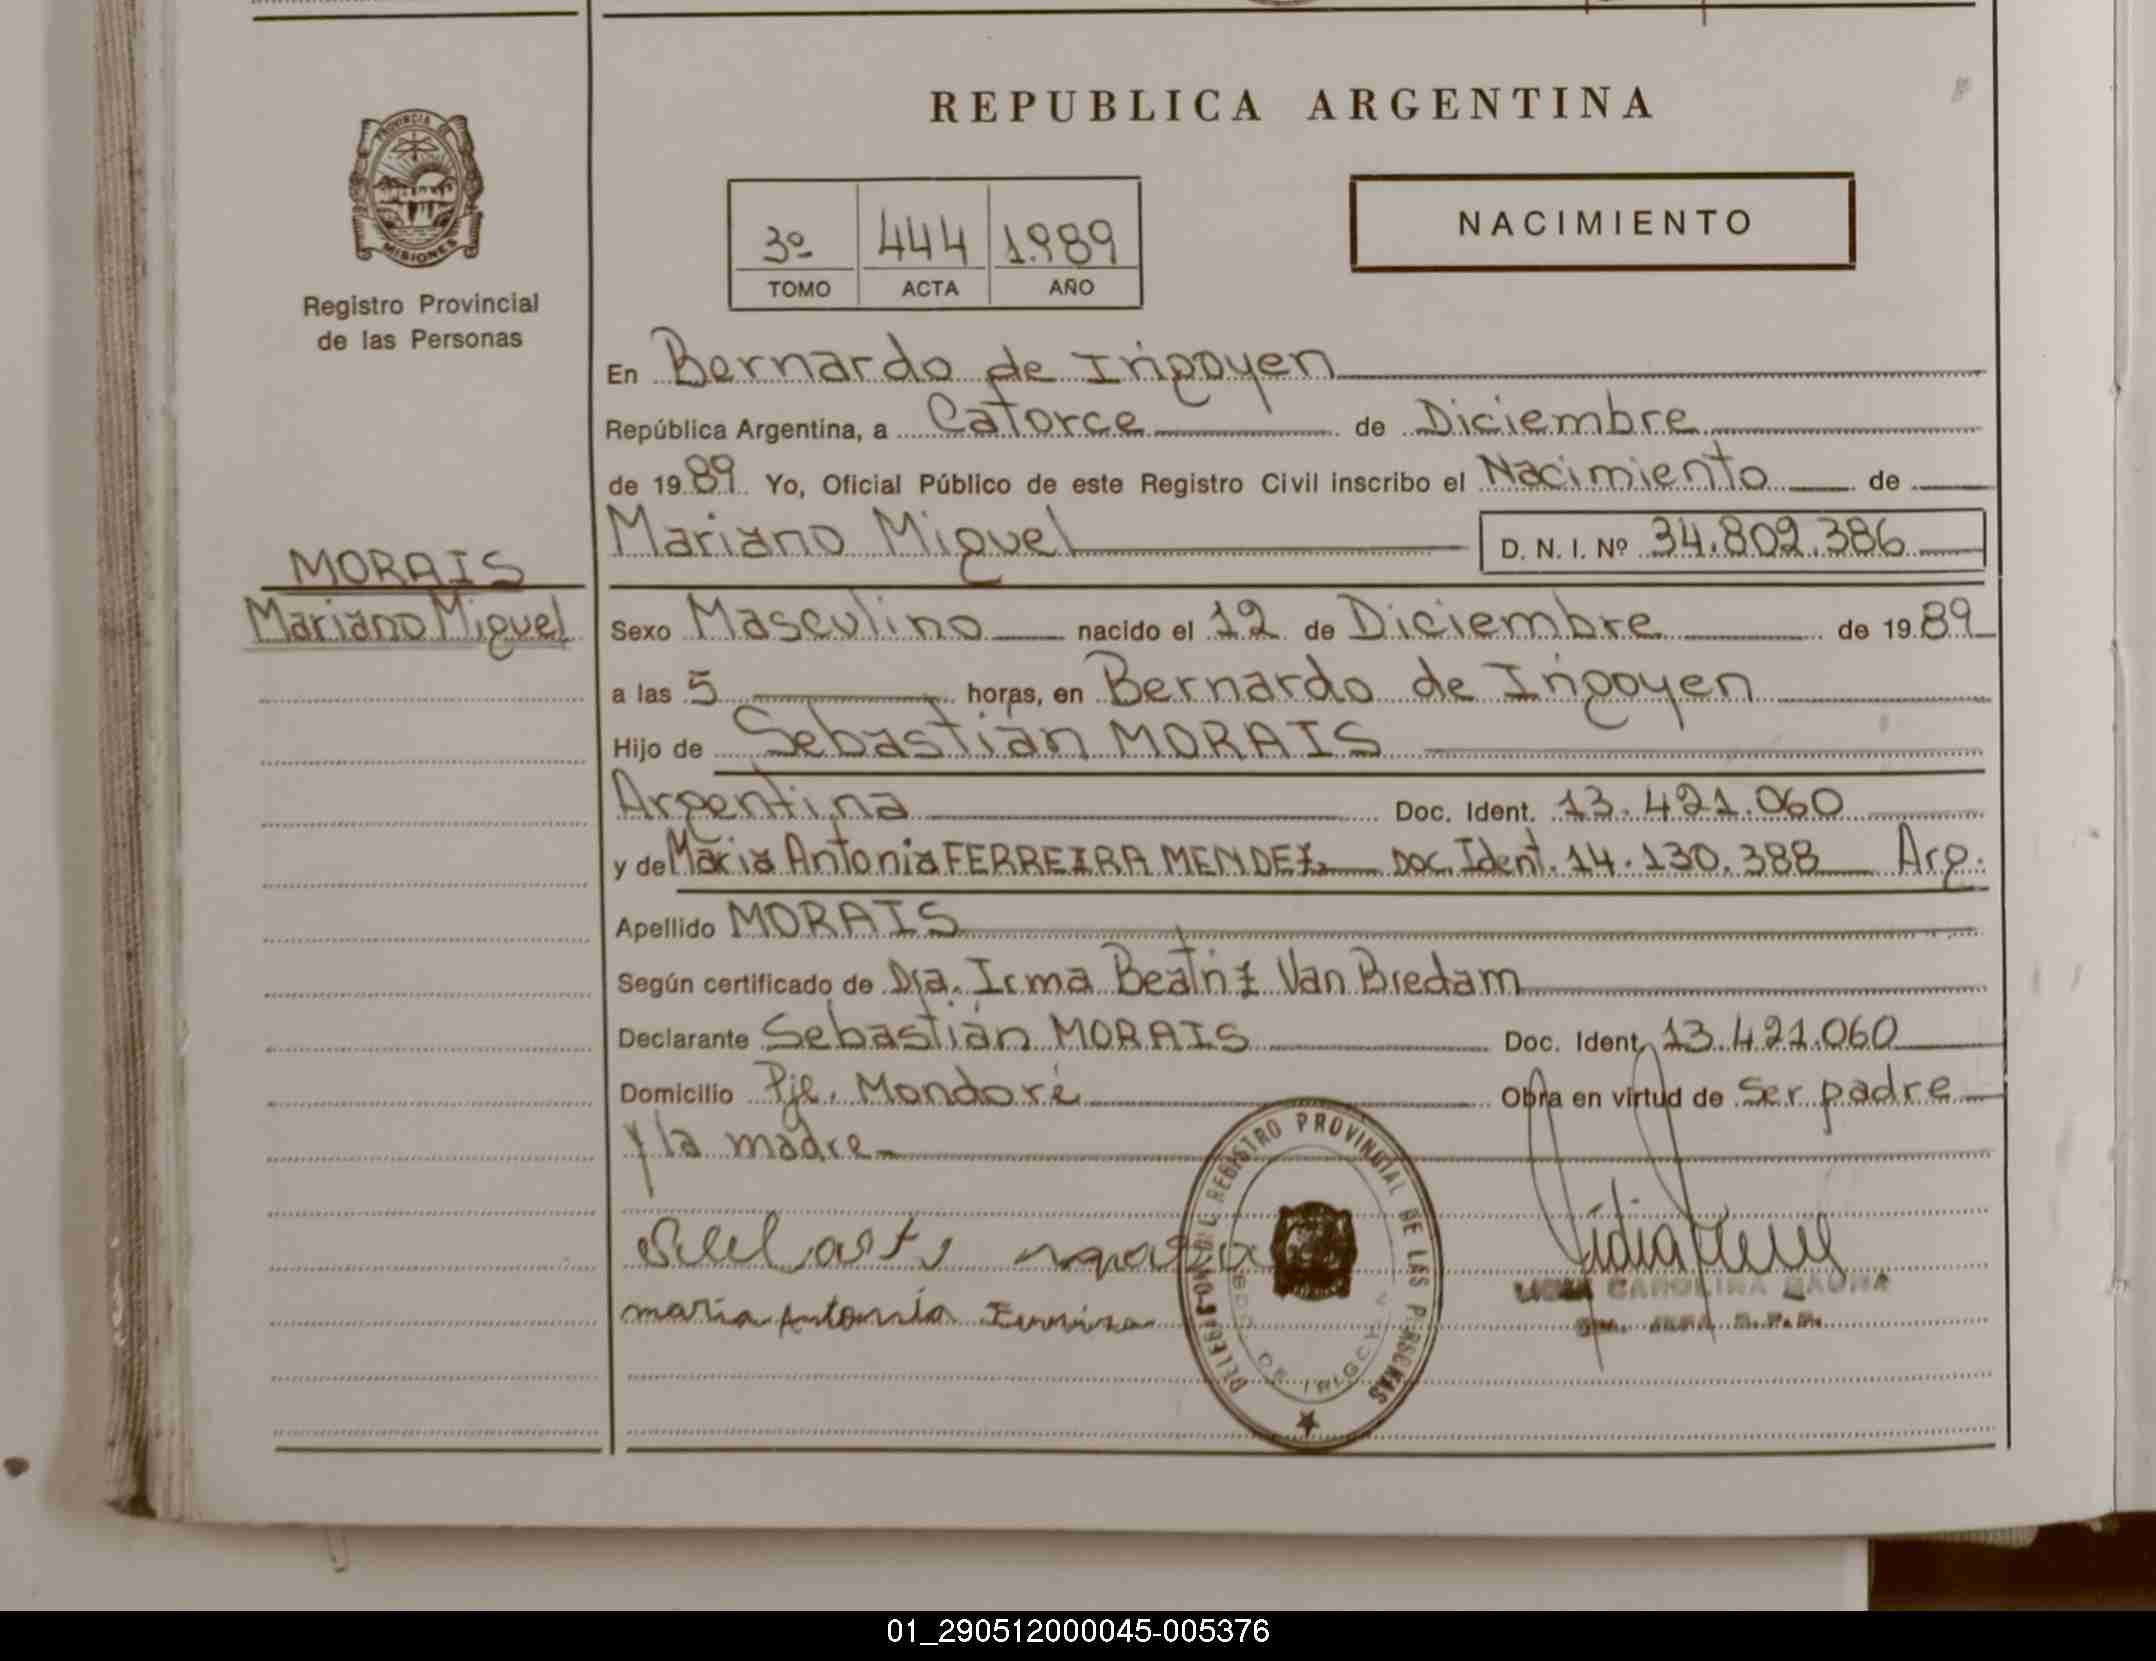 REPUBLICA ARGENTINA
PROVINCIA DE
MISIONES
Registro Provincial
de las Personas
NACIMIENTO
3º 444 1.989
TOMO ACTA AÑO
En Bernardo de Irigoyen
República Argentina, a Catorce de Diciembre
de 1989 Yo, Oficial Público de este Registro Civil inscribo el Nacimiento de
Mariano Miguel D. N. I. Nº 34.802.386
MORAIS
Mariano Miguel
Sexo Masculino nacido el 12 de Diciembre de 1989
a las 5 horas, en Bernardo de Irigoyen
Hijo de Sebastián MORAIS
Argentina Doc. Ident. 13.421.060
y de Maria Antonia FERREIRA MENDEZ Doc. Ident. 14.130.388 Arg.
Apellido MORAIS
Según certificado de Dra. Irma Beatriz Van Bredam
Declarante Sebastián MORAIS Doc. Ident. 13.421.060
Domicilio Pje. Mondoré Obra en virtud de ser padre
y la madre
REGISTRO PROVINCIAL DE LAS PERSONAS
DE IRIGOYEN
maria Antonia Ferreira
CAROLINA
01_290512000045-005376